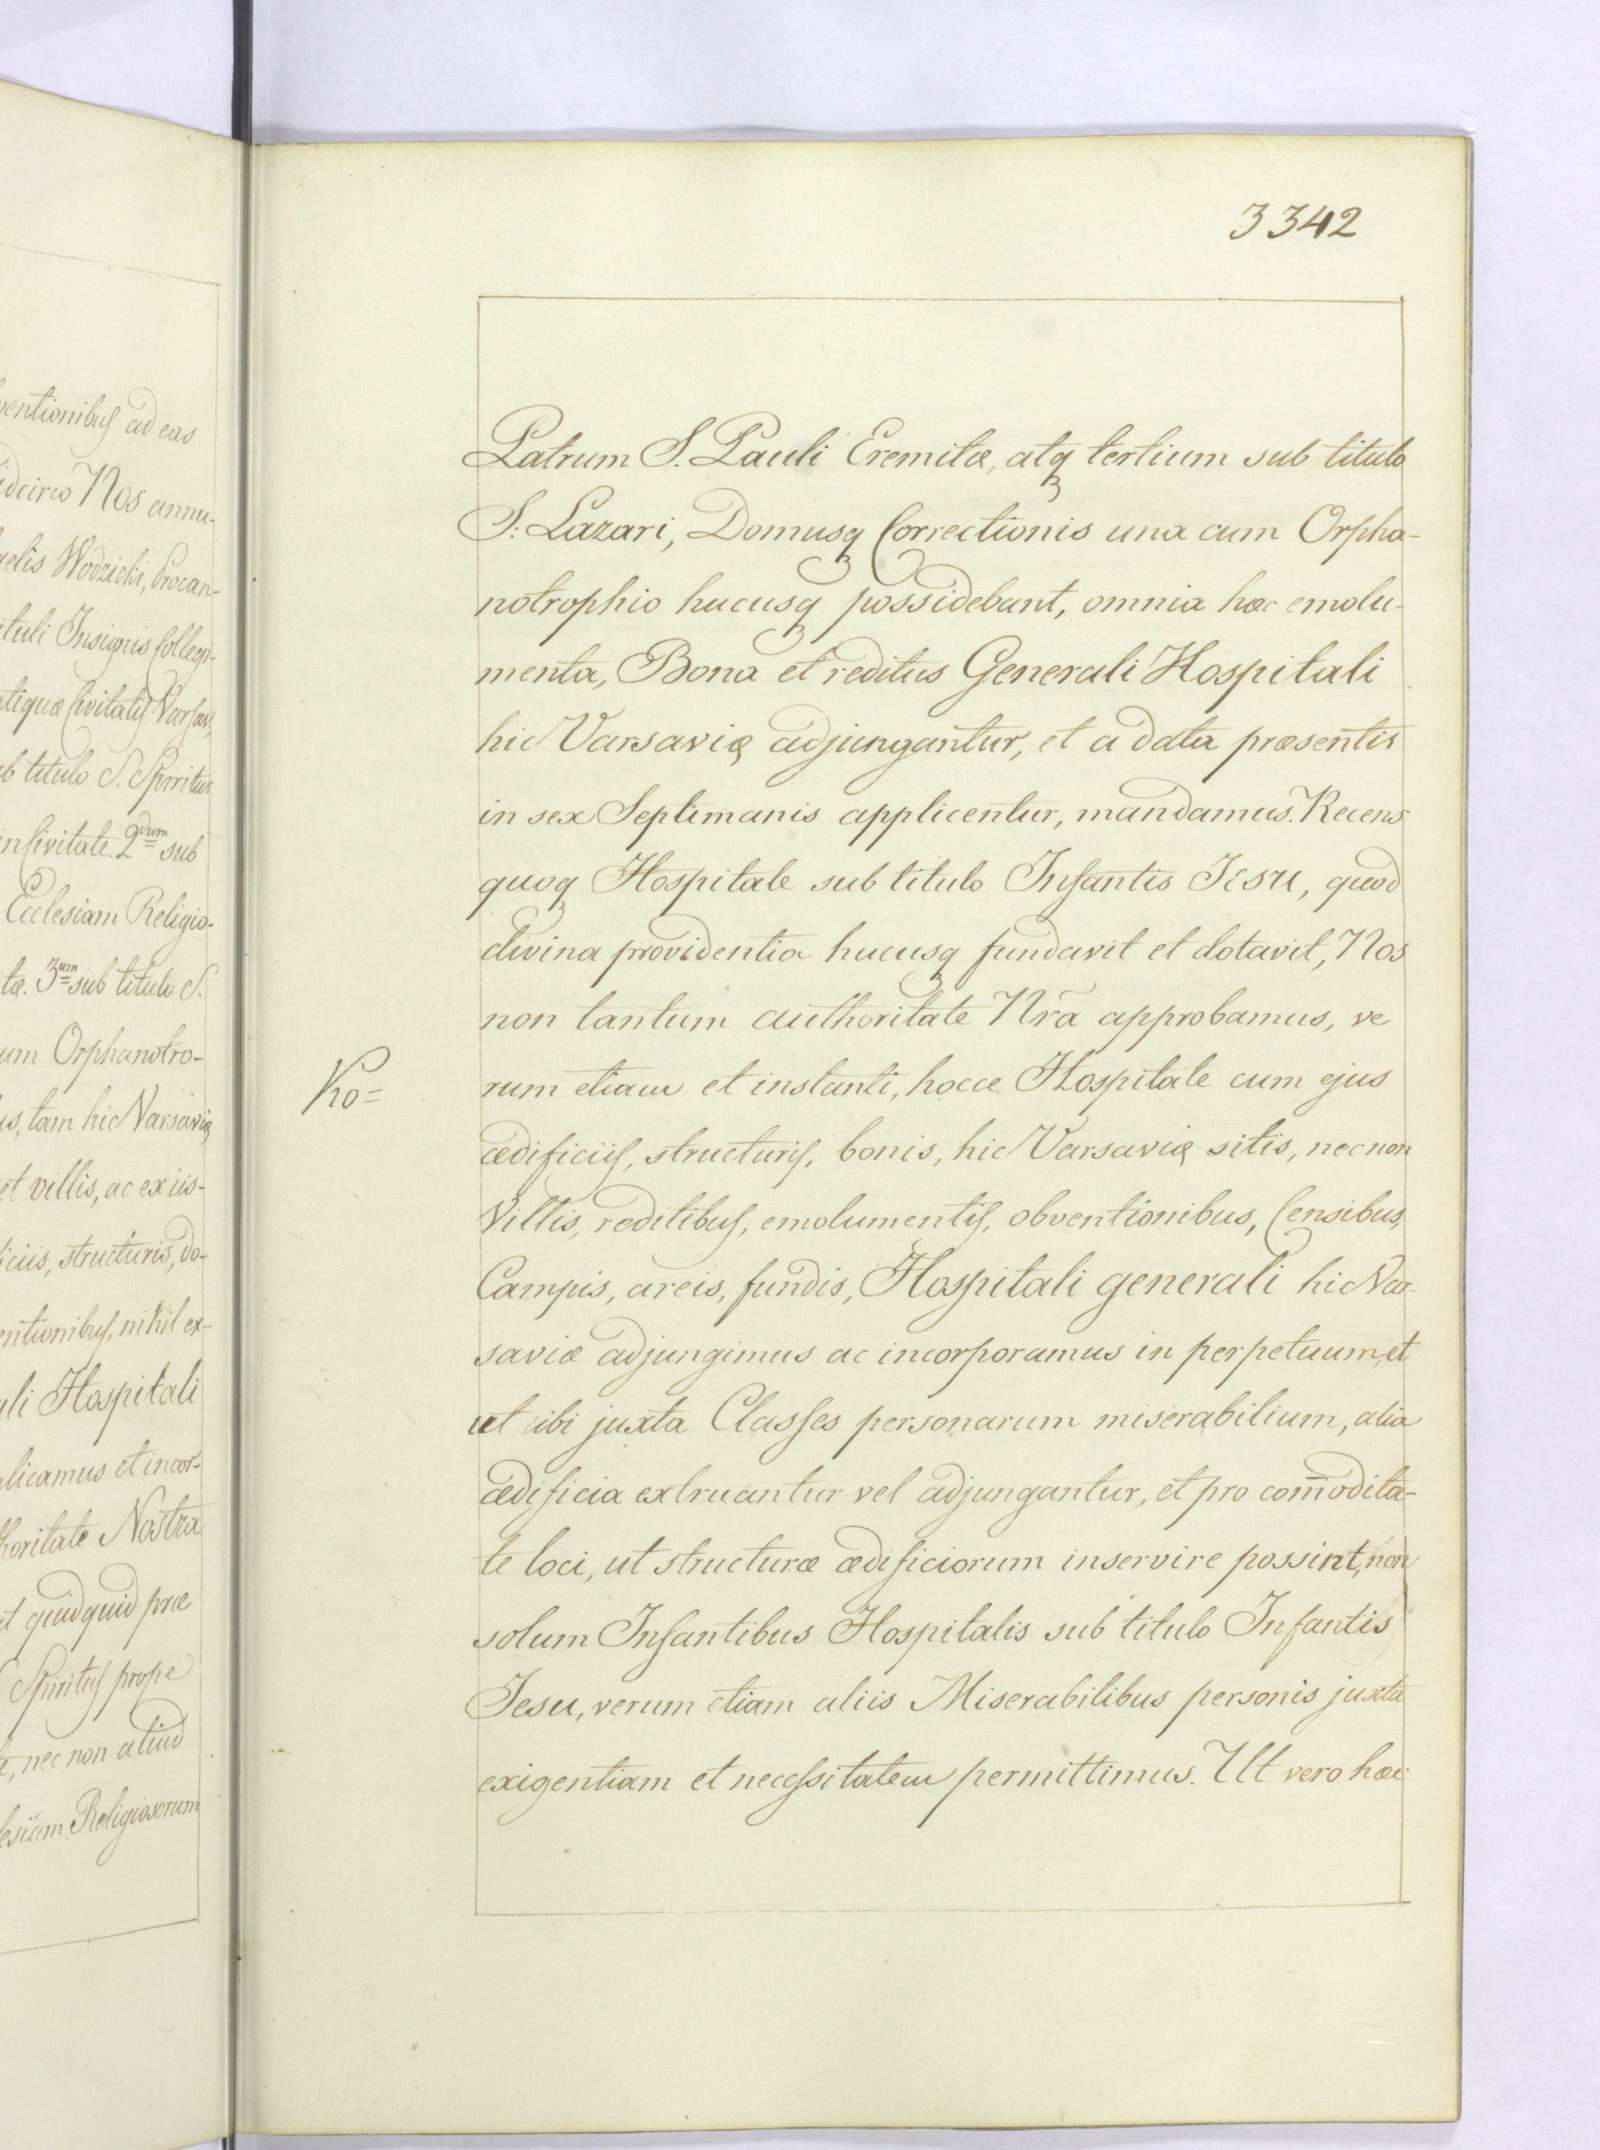 ventionibus ad eas
idcirco Nos annu-
aelis Wodzicki, Procan-
ituli Insignis Collegi-
atiquæ Civitatis Varsav,
b titulo S. Spiritus
in Civitate. 2dum sub
Ecclesiam Religio-
tæ. 3um sub titulo S.
um Orphanotro-
us, tam hic Varsaviæ
et villis, ac ex iis-
iciis, structuris, do-
entionibus, nihil ex-
ali Hospitali
plicamus et incor-
thoritate Nostra
it quidquid præ
Spiritus prope
nec non aliud
lesiam Religiosorum
3342
Patrum S. Pauli Eremitæ, atq tertium sub titulo
S: Lazari, Domusq Correctionis una cum Orpha-
notrophio hucusq possidebant, omnia hæc emolu-
menta, Bona et reditus Generali Hospitali
hic Varsaviæ adjungantur, et a data præsentis
in sex Septimanis applicentur, mandamus. Recens
quoq Hospitale sub titulo Infantis Jesu, quod
divina providentia hucusq fundavit et dotavit, Nos
non tantum authoritate Nrã approbamus, ve
rum etiam et instanti, hocce Hospitale cum ejus
ædificiis, structuris, bonis, hic Varsaviæ sitis, nec non
Villis, reditibus, emolumentis, obventionibus, Censibus,
Campis, areis, fundis, Hospitali generali hic Var-
saviæ adjungimus ac incorporamus in perpetuum, et
ut ibi juxta Classes personarum miserabilium, alia
ædificia extruantur vel adjungantur, et pro com̄odita-
te loci, ut structuræ ædificiorum inservire possint, non
solum Infantibus Hospitalis sub titulo Infantis
Jesu, verum etiam aliis Miserabilibus personis juxta
exigentiam et necessitatem permittimus. Ut vero hæc
Ko=